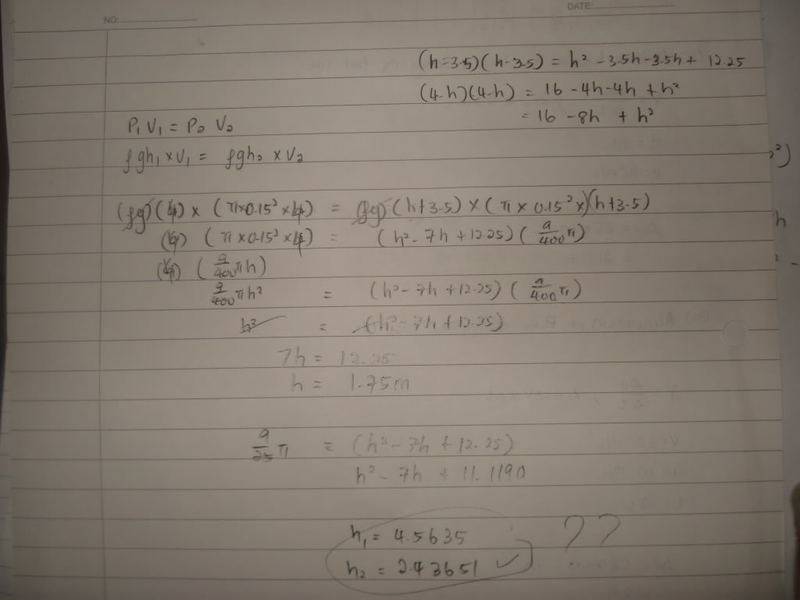 NO:
DATE:
(h-3.5)(h-3.5) = h² - 3.5h - 3.5h + 12.25
(4-h)(4-h) = 16 - 4h - 4h + h²
= 16 - 8h + h²
P₁ V₁ = P₂ V₂
ρgh₁ × V₁ = ρgh₂ × V₂
(ρg)(4) × (π × 0.15² × 4) = (ρg)(h+3.5) × (π × 0.15² ×)(h+3.5)
(π × 0.15² × 4) = (h² - 7h + 12.25)(9/400 π)
(9/400 πh)
9/400 πh² = (h² - 7h + 12.25)(9/400 π)
h² = (h² - 7h + 12.25)
7h = 12.25
h = 1.75m
9/25 π = (h² - 7h + 12.25)
h² - 7h + 11.1190
h₁ = 4.5635
h₂ = 2.43651 ✓
??